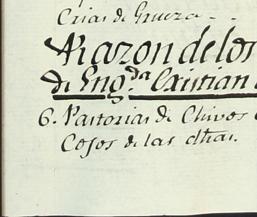 Crias de Grueza - -
Razon de los
de Eng.da Cristian
6. Pastorias de Chivos
Cosos de las otras.